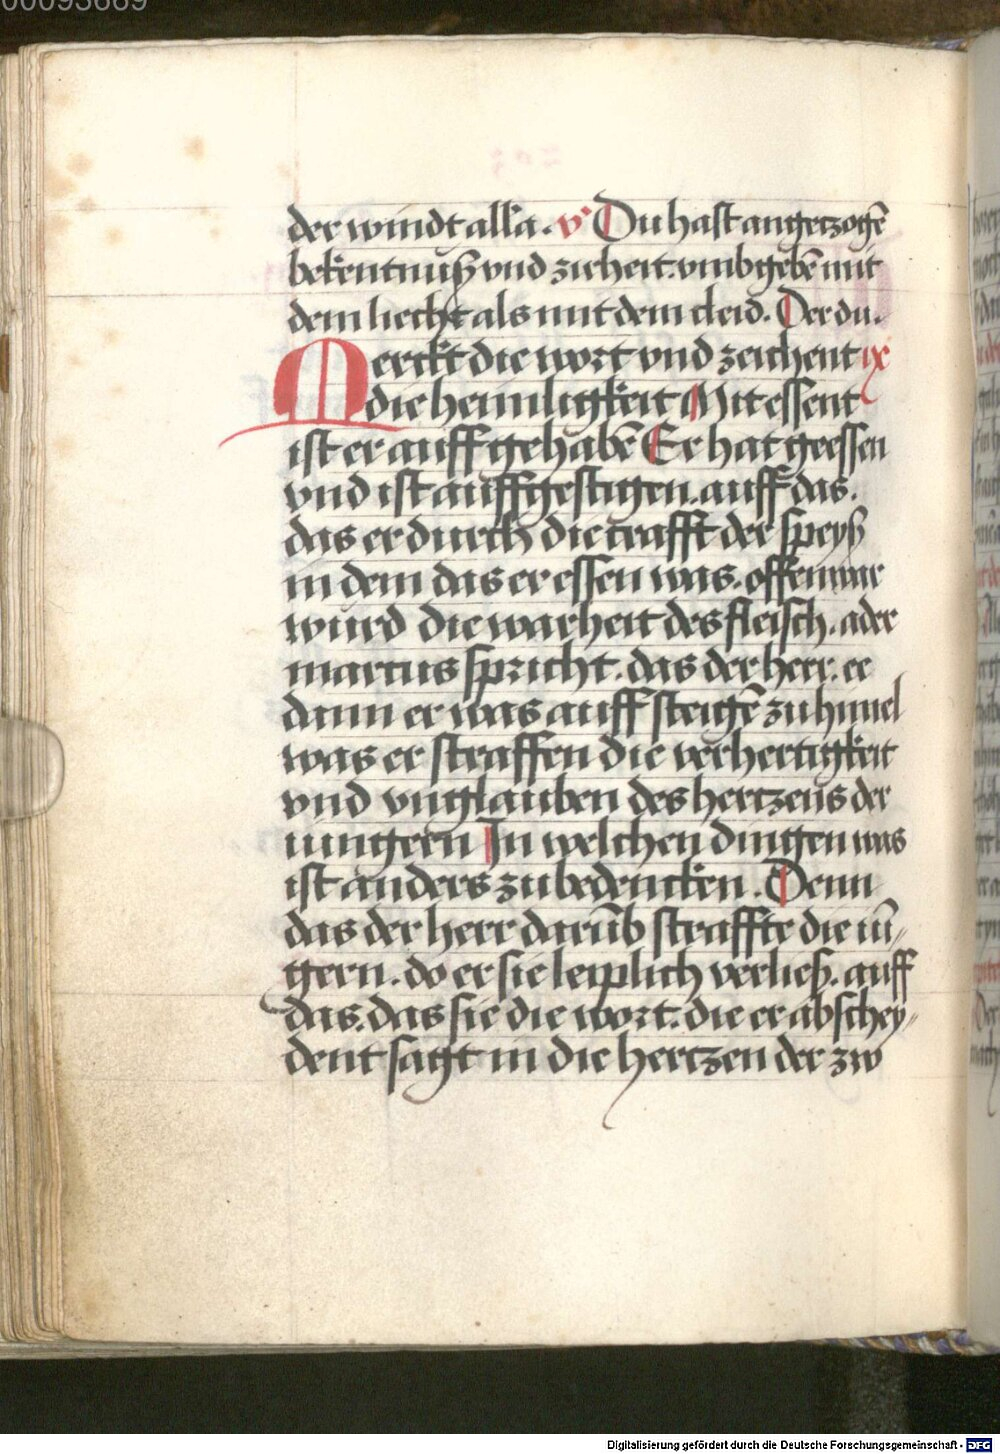 00093669
der windt alla. v° Du hast angetzogē
bekentnuß vnd zicheit. vmbgebē mit
dem liecht als mit dem cleid. Der du.
Merckt die wort vnd zeichent ix
die heimligkeit Mit essent
ist er auff gehabē Er hat geessen
vnd ist auffgestigen. auff das.
das er durch die crafft der speyß
in dem das er essen was. offenwar
wurd die warheit des fleisch. ader
marcus spricht. das der herr. ee
dann er was auff steigē zu himel
was er straffen die verhertigkeit
vnd vnglauben des hertzens der
iungern In welchen dingen was
ist anders zu bedencken. Denn
das der herr darūb straffte die iū//
gern. do er sie leiplich verließ. auff
das. das sie die wort. die er abschey//
dent sagt in die hertzen der zw
Digitalisierung gefördert durch die Deutsche Forschungsgemeinschaft - DFG